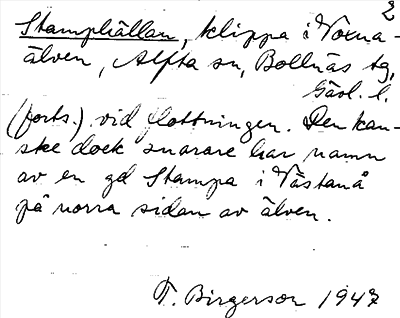 2
Stamphällan, klippa i Voxna-
älven, Alfta sn, Bollnäs tg,
Gävl. l.
(forts.) vid flottningen. Den kan-
ske dock snarare har namn
av en gd Stampa i Västanå
på norra sidan av älven.
T. Birgerson 1947